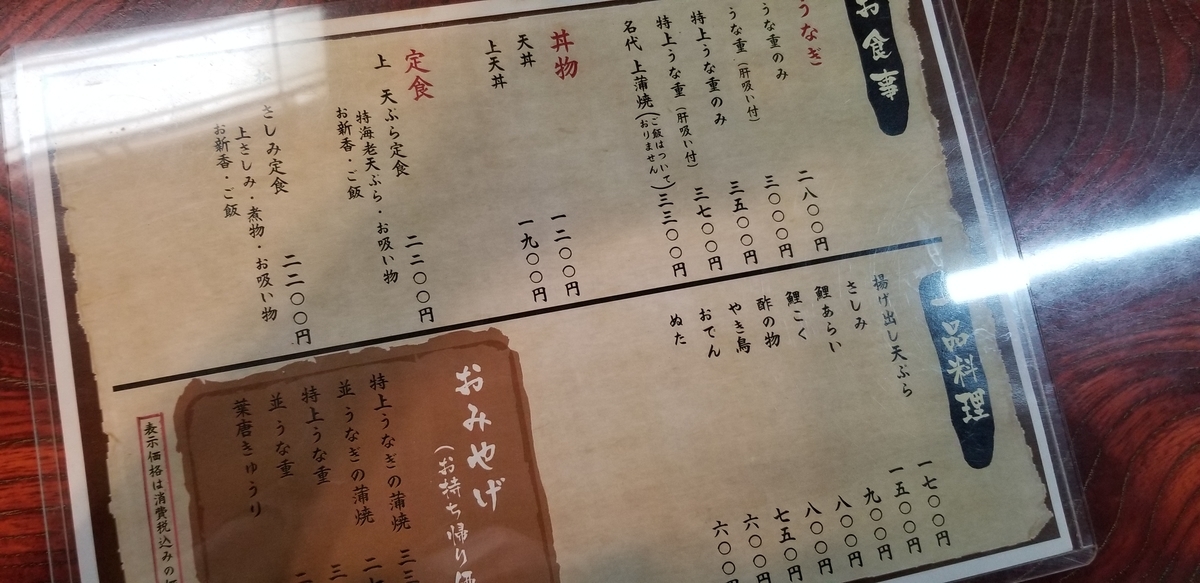 お食事
うなぎ
うな重のみ 二八〇〇円
うな重(肝吸い付) 三〇〇〇円
特上うな重のみ 三五〇〇円
特上うな重(肝吸い付) 三七〇〇円
名代 上蒲焼(ご飯はついておりません) 三三〇〇円
丼物
天丼 一二〇〇円
上天丼 一九〇〇円
定食
上 天ぷら定食 二二〇〇円
特海老天ぷら・お吸い物
お新香・ご飯
上 さしみ定食 二二〇〇円
上さしみ・煮物・お吸い物
お新香・ご飯
一品料理
揚げ出し天ぷら 一七〇〇円
さしみ 一五〇〇円
鯉あらい 九〇〇円
鯉こく 八〇〇円
酢の物 八〇〇円
やき鳥 七五〇円
おでん 六〇〇円
ぬた 六〇〇
おみやげ
(お持ち帰り
特上うなぎの蒲焼 三三
並うなぎの蒲焼 二
特上うな重 三
並うな重 二
葉唐きゅうり
表示価格は消費税込みの